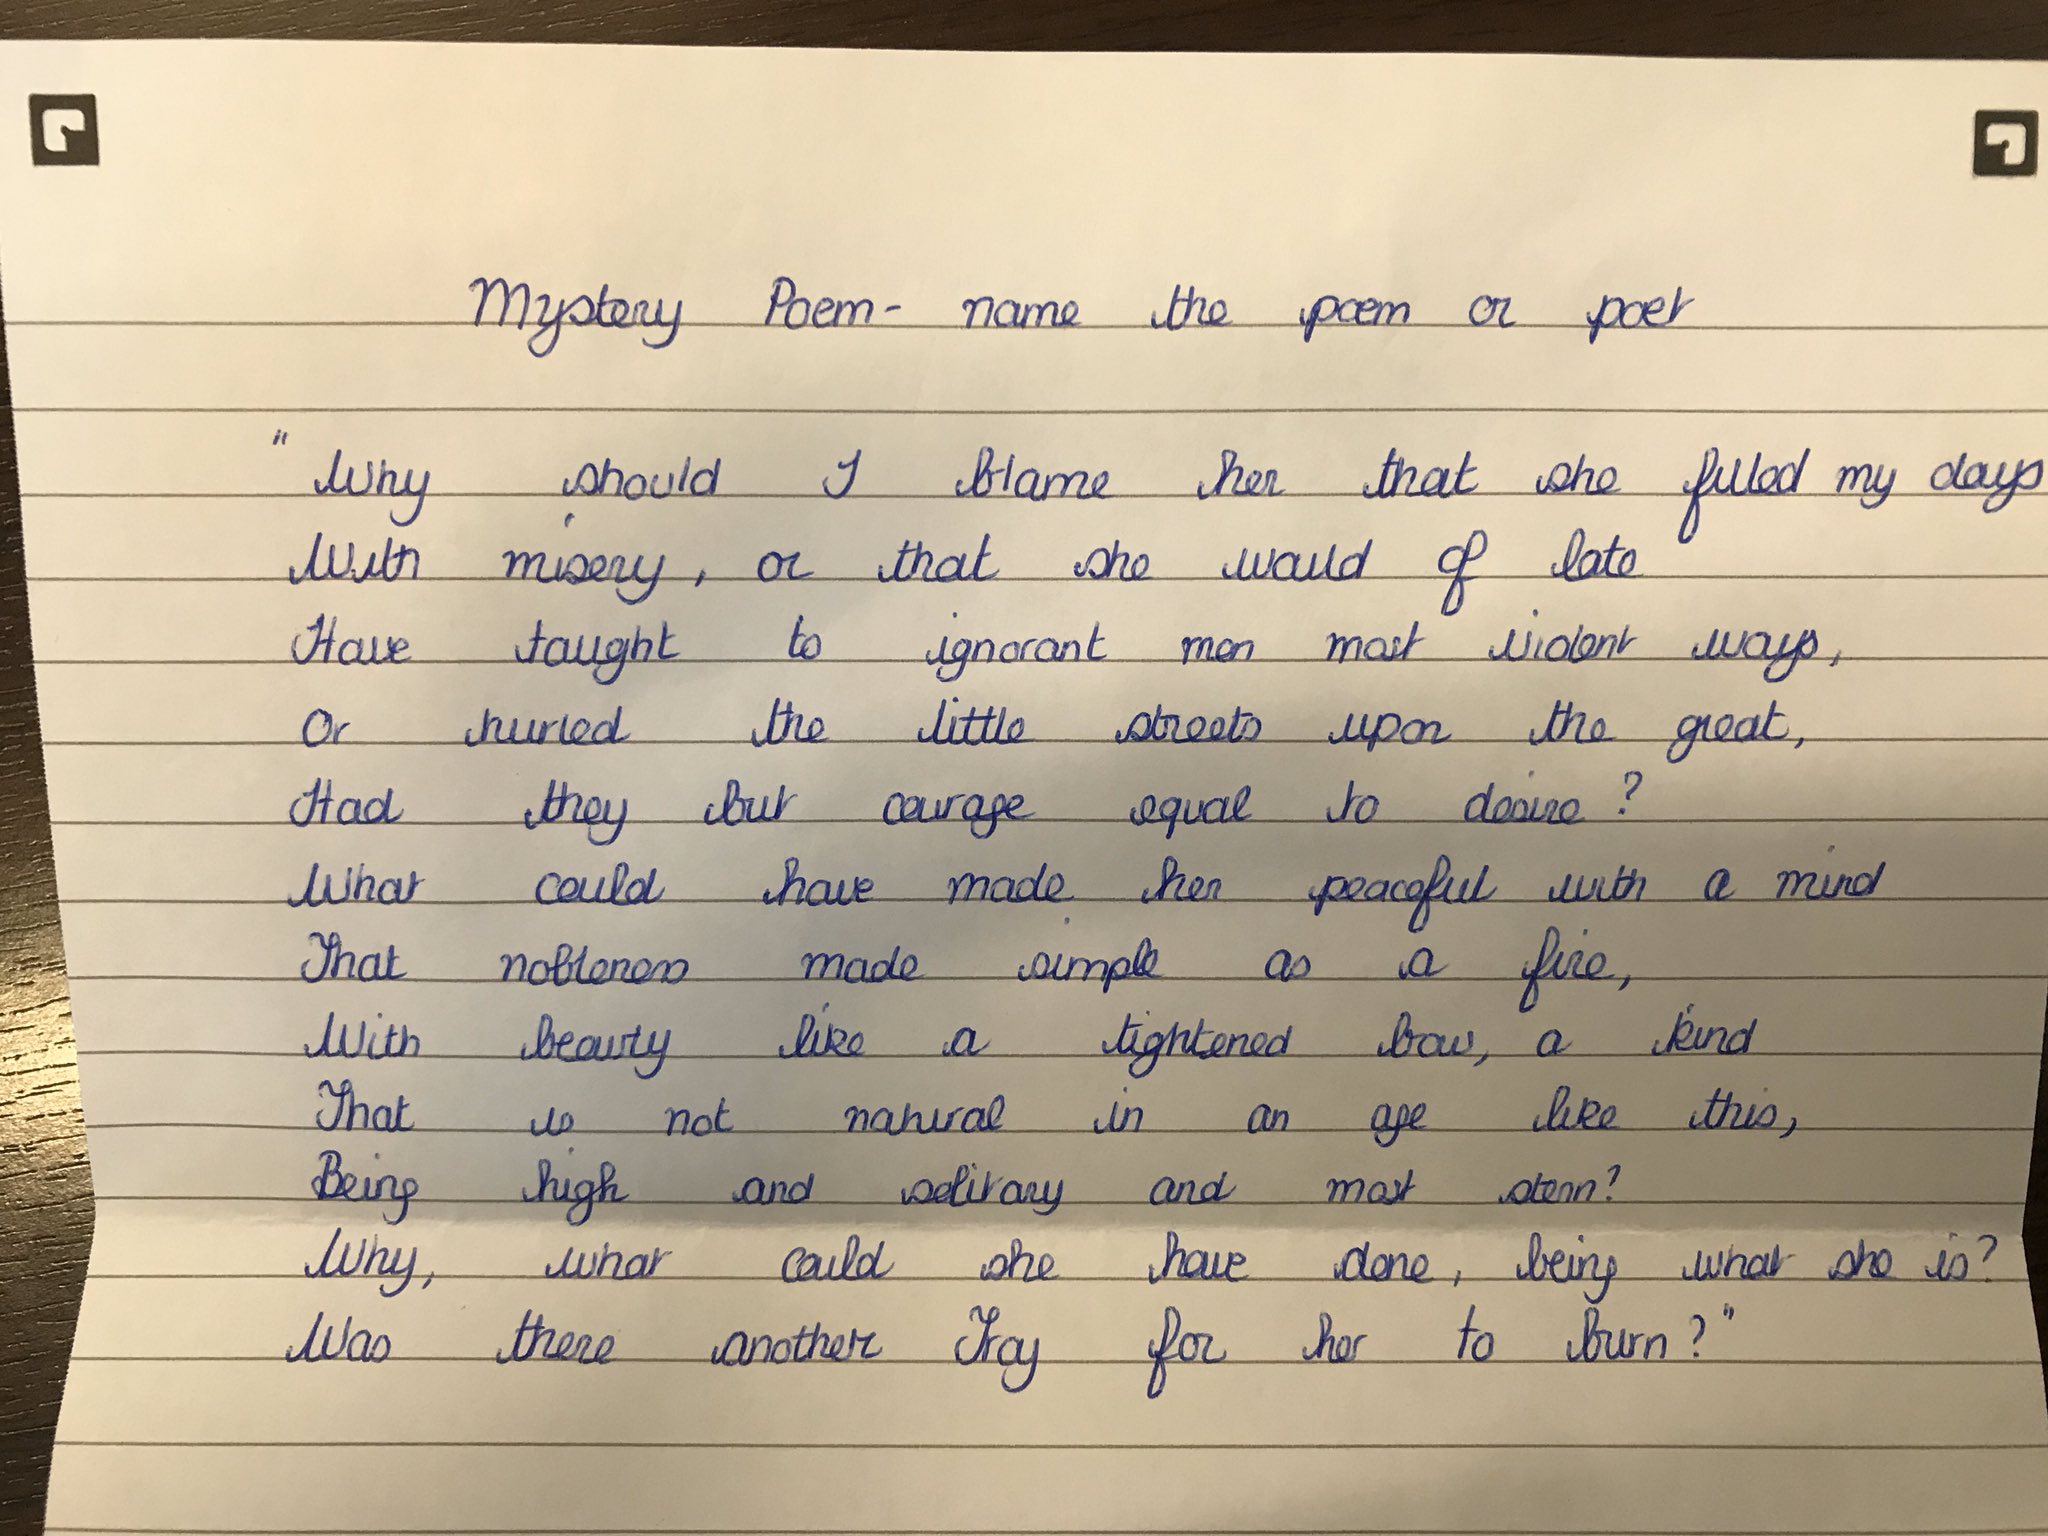 Mystery Poem- name the poem or poet
"Why should I blame her that she filled my days
With misery, or that she would of late
Have taught to ignorant men most violent ways,
Or hurled the little streets upon the great,
Had they but courage equal to desire?
What could have made her peaceful with a mind
That nobleness made simple as a fire,
With beauty like a tightened bow, a kind
That is not natural in an age like this,
Being high and solitary and most stern?
Why, what could she have done, being what she is?
Was there another Troy for her to burn?"